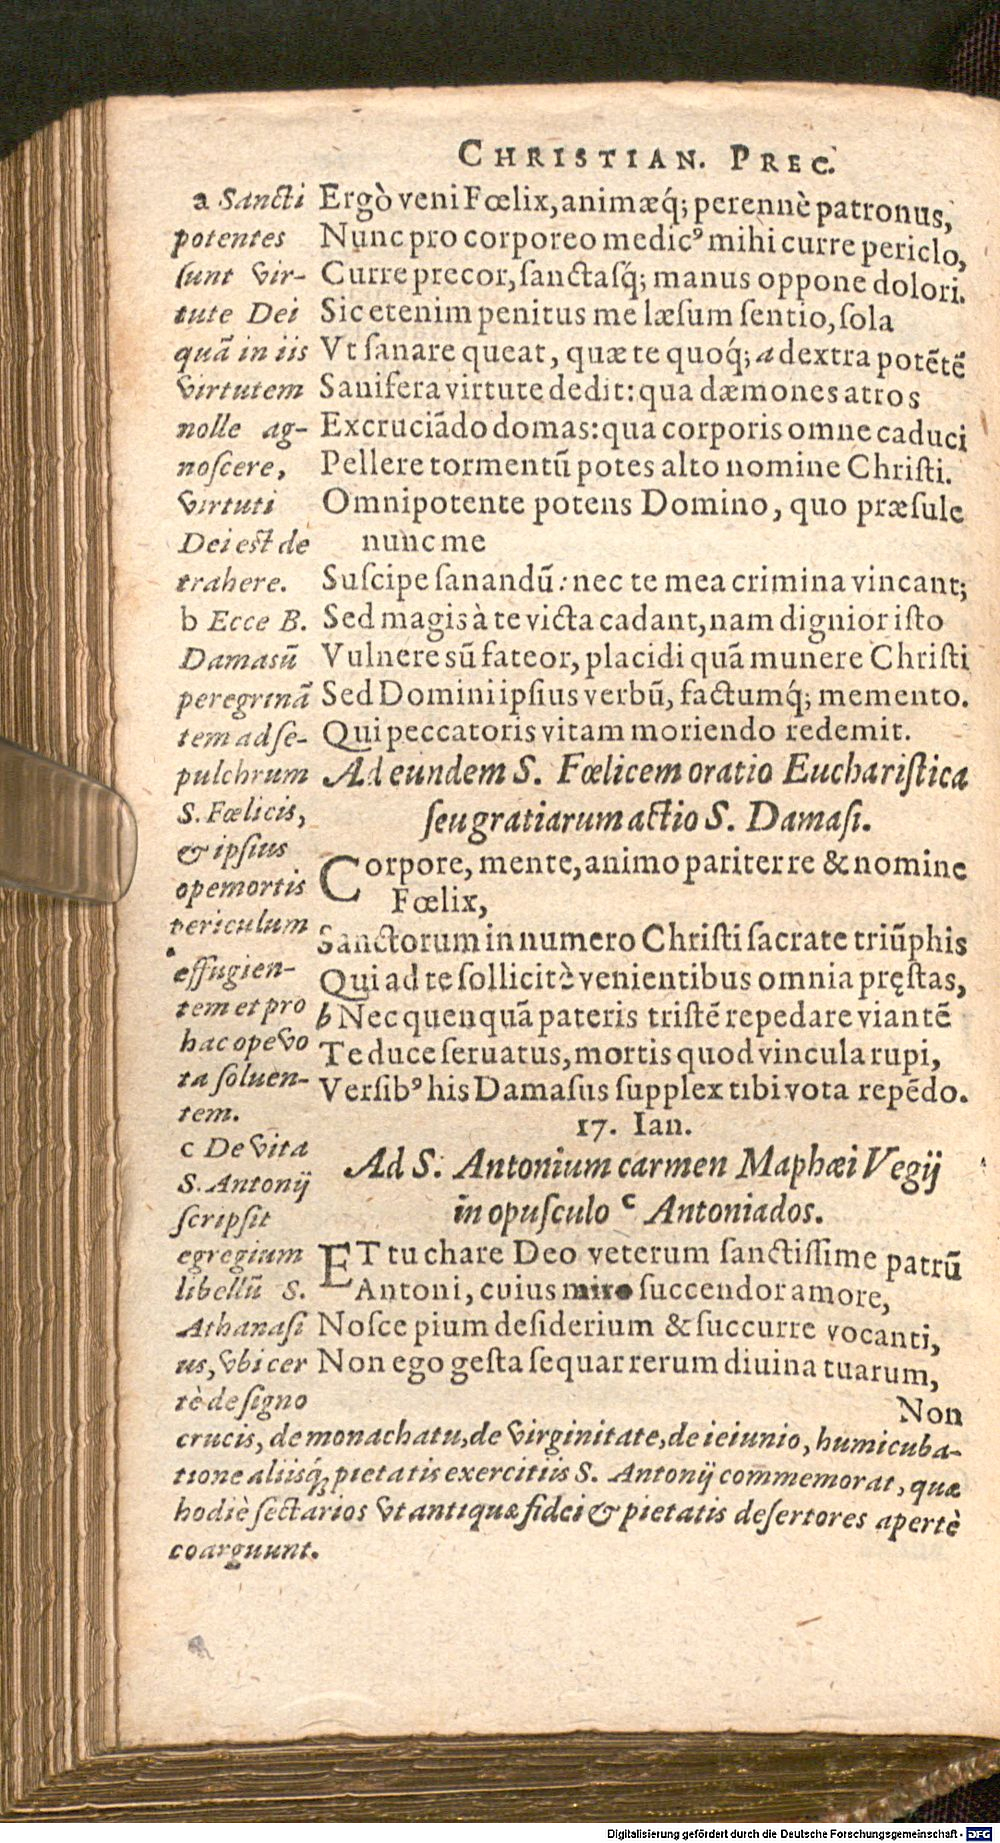 CHRISTIAN. PREC.
Ergò veni Fœlix, animæq́; perennè patronus,
Nunc pro corporeo medicꝰ mihi curre periclo,
Curre precor, sanctasq́; manus oppone dolori.
Sic etenim penitus me læsum sentio, sola
Vt sanare queat, quæ te quoq́; a dextra potẽtẽ
Sanifera virtute dedit: qua dæmones atros
Excruciãdo domas: qua corporis omne caduci
Pellere tormentũ potes alto nomine Christi.
Omnipotente potens Domino, quo præsule
nunc me
Suscipe sanandũ: nec te mea crimina vincant;
Sed magis à te victa cadant, nam dignior isto
Vulnere sũ fateor, placidi quã munere Christi
Sed Domini ipsius verbũ, factumq́; memento.
Qui peccatoris vitam moriendo redemit.
Ad eundem S. Fœlicem oratio Eucharistica
seu gratiarum actio S. Damasi.
Corpore, mente, animo pariter re & nomine
Fœlix,
Sanctorum in numero Christi sacrate triũphis
Qui ad te sollicitè venientibus omnia pręstas,
b Nec quenquã pateris tristẽ repedare viantẽ
Te duce seruatus, mortis quod vincula rupi,
Versibꝰ his Damasus supplex tibi vota repẽdo.
17. Ian.
Ad S. Antonium carmen Maphæi Vegij
in opusculo c Antoniados.
ET tu chare Deo veterum sanctissime patrũ
Antoni, cuius miro succendor amore,
Nosce pium desiderium & succurre vocanti,
Non ego gesta sequar rerum diuina tuarum,
Non
a Sancti
potentes
sunt vir-
tute Dei
quã in iis
virtutem
nolle ag-
noscere,
virtuti
Dei est de
trahere.
b Ecce B.
Damasũ
peregrinã
tem ad se-
pulchrum
S. Fœlicis,
& ipsius
ope mortis
periculum
effugien-
tem et pro
hac ope vo
ta soluen-
tem.
c De vita
S. Antonij
scripsit
egregium
libellũ S.
Athanasi
us, vbi cer
tè de signo
crucis, de monachatu, de virginitate, de ieiunio, humicuba-
tione aliisq́; pietatis exercitiis S. Antonij commemorat, quæ
hodiè sectarios vt antiquæ fidei & pietatis desertores apertè
coarguunt.
Digitalisierung gefördert durch die Deutsche Forschungsgemeinschaft - DFG